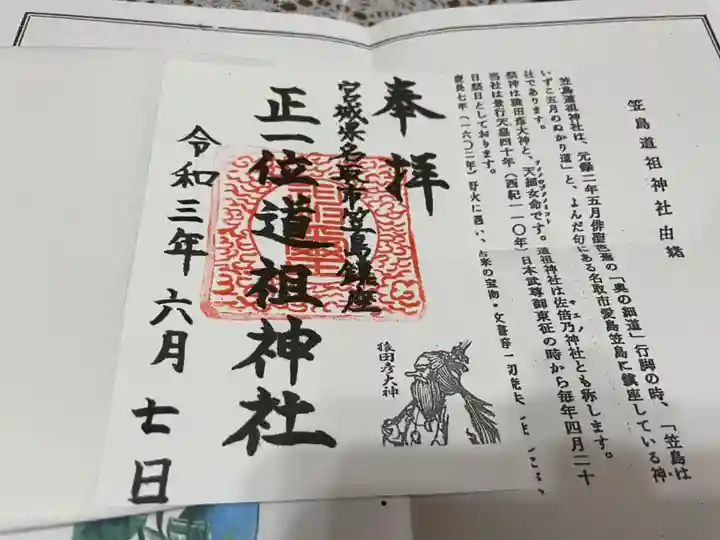 笠島道祖神社由緒
笠島道祖神社は、元禄二年五月俳聖芭蕉の「奥の細道」行脚の時、「笠島は
いずこ五月のぬかり道」と、よんだ句にある名取市愛島笠島に鎮座している神
社であります。
祭神は猿田彦大神と、天鈿女命です。道祖神社は佐倍乃神社とも称します。
当社は景行天皇四十年（西紀一一〇年）日本武尊御東征の時から毎年四月二十
日祭日としております。
慶長七年（一六〇二年）野火に遇い、古来の宝物・文書等一切焼失
奉拝
宮城県名取市笠島鎮座
正一位道祖神社
令和三年六月七日
猿田彦大神